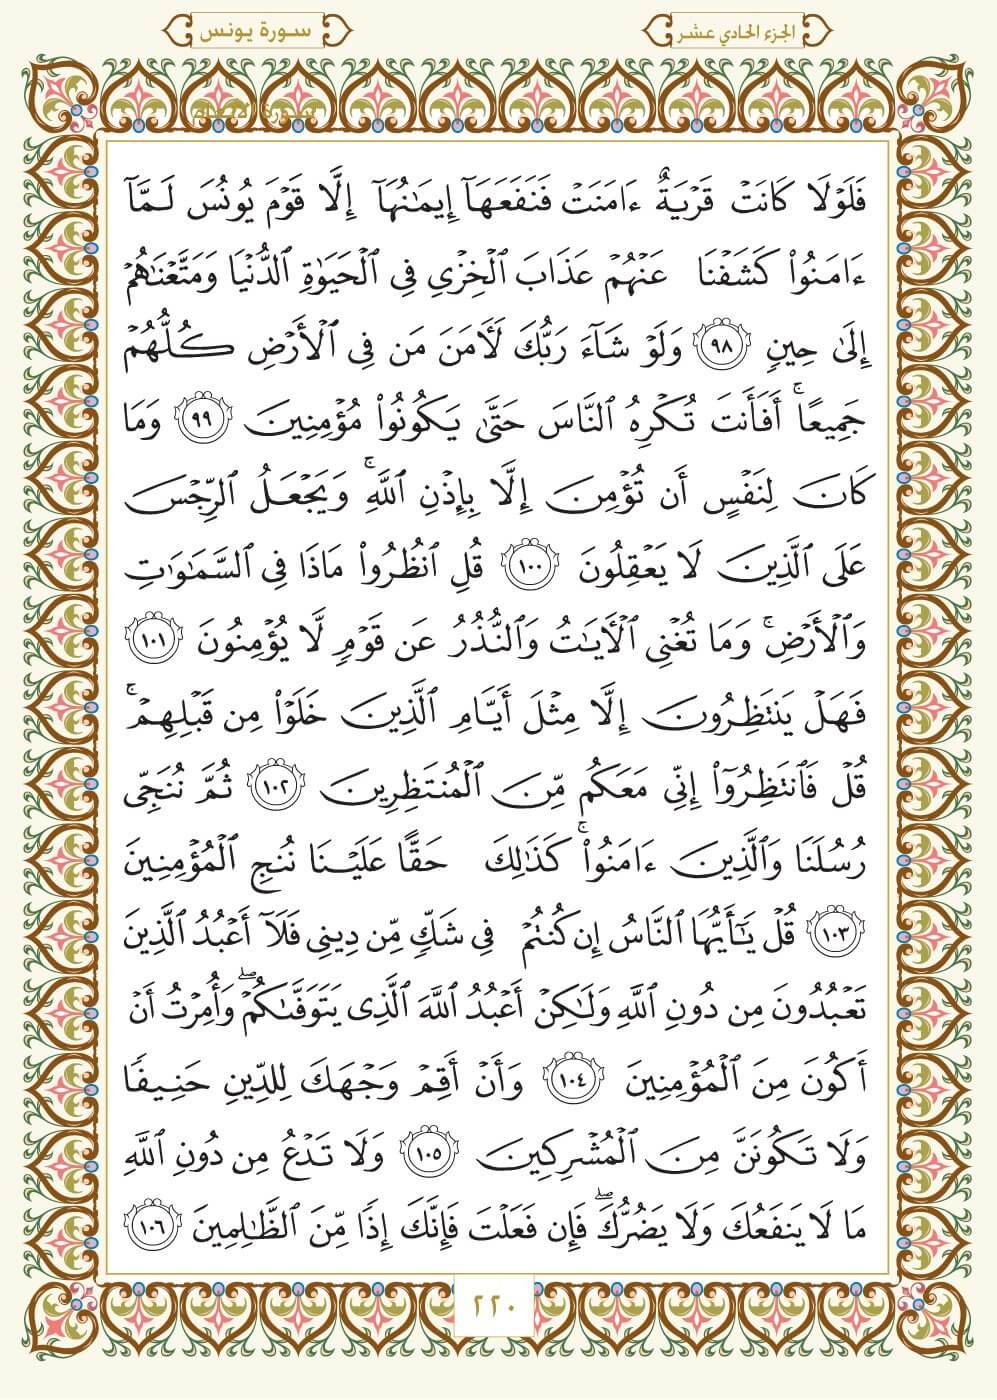 الجزء الحادي عشر
سورة يونس
فَلَوۡلَا كَانَتۡ قَرۡيَةٌ ءَامَنَتۡ فَنَفَعَهَآ إِيمَٰنُهَآ إِلَّا قَوۡمَ يُونُسَ لَمَّآ
ءَامَنُواْ كَشَفۡنَا عَنۡهُمۡ عَذَابَ ٱلۡخِزۡيِ فِي ٱلۡحَيَوٰةِ ٱلدُّنۡيَا وَمَتَّعۡنَٰهُمۡ
إِلَىٰ حِينٖ ٩٨ وَلَوۡ شَآءَ رَبُّكَ لَأٓمَنَ مَن فِي ٱلۡأَرۡضِ كُلُّهُمۡ
جَمِيعًاۚ أَفَأَنتَ تُكۡرِهُ ٱلنَّاسَ حَتَّىٰ يَكُونُواْ مُؤۡمِنِينَ ٩٩ وَمَا
كَانَ لِنَفۡسٍ أَن تُؤۡمِنَ إِلَّا بِإِذۡنِ ٱللَّهِۚ وَيَجۡعَلُ ٱلرِّجۡسَ
عَلَى ٱلَّذِينَ لَا يَعۡقِلُونَ ١٠٠ قُلِ ٱنظُرُواْ مَاذَا فِي ٱلسَّمَٰوَٰتِ
وَٱلۡأَرۡضِۚ وَمَا تُغۡنِي ٱلۡأٓيَٰتُ وَٱلنُّذُرُ عَن قَوۡمٖ لَّا يُؤۡمِنُونَ ١٠١
فَهَلۡ يَنتَظِرُونَ إِلَّا مِثۡلَ أَيَّامِ ٱلَّذِينَ خَلَوۡاْ مِن قَبۡلِهِمۡۚ
قُلۡ فَٱنتَظِرُوٓاْ إِنِّي مَعَكُم مِّنَ ٱلۡمُنتَظِرِينَ ١٠٢ ثُمَّ نُنَجِّي
رُسُلَنَا وَٱلَّذِينَ ءَامَنُواْۚ كَذَٰلِكَ حَقًّا عَلَيۡنَا نُنجِ ٱلۡمُؤۡمِنِينَ
١٠٣ قُلۡ يَٰٓأَيُّهَا ٱلنَّاسُ إِن كُنتُمۡ فِي شَكّٖ مِّن دِينِي فَلَآ أَعۡبُدُ ٱلَّذِينَ
تَعۡبُدُونَ مِن دُونِ ٱللَّهِ وَلَٰكِنۡ أَعۡبُدُ ٱللَّهَ ٱلَّذِي يَتَوَفَّىٰكُمۡۖ وَأُمِرۡتُ أَنۡ
أَكُونَ مِنَ ٱلۡمُؤۡمِنِينَ ١٠٤ وَأَنۡ أَقِمۡ وَجۡهَكَ لِلدِّينِ حَنِيفٗا
وَلَا تَكُونَنَّ مِنَ ٱلۡمُشۡرِكِينَ ١٠٥ وَلَا تَدۡعُ مِن دُونِ ٱللَّهِ
مَا لَا يَنفَعُكَ وَلَا يَضُرُّكَۖ فَإِن فَعَلۡتَ فَإِنَّكَ إِذٗا مِّنَ ٱلظَّٰلِمِينَ ١٠٦
٢٢٠